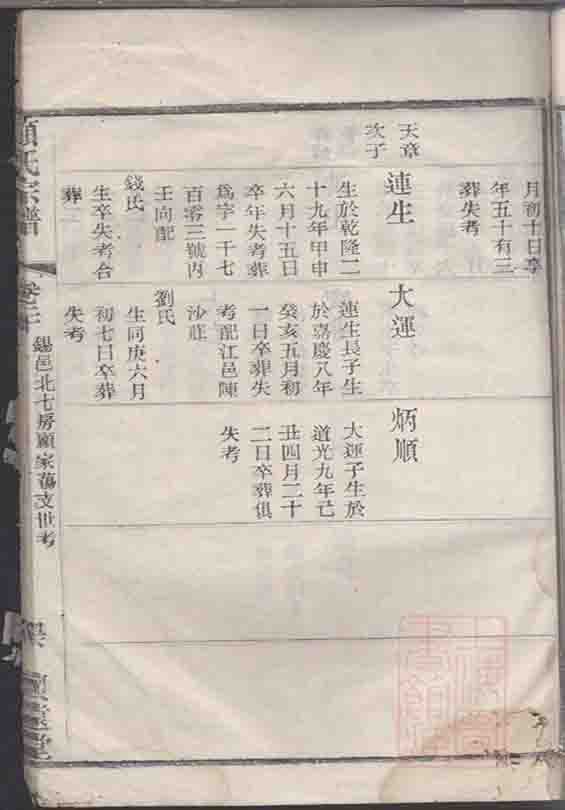 月初十日享
年五十有三
葬失考
天章
次子
連生
生於乾隆二
十九年甲申
六月十五日
卒年失考葬
為字一千七
百零三號內
壬向配
錢氏
生卒失考合
葬
大運
連生長子生
於嘉慶八年
癸亥五月初
一日卒葬失
考配江邑陳
沙莊
劉氏
生同庚六月
初七日卒葬
失考
炳順
大運子生於
道光九年己
丑四月二十
二日卒葬俱
失考
氏宗譜
錫邑北七房顧家蕩支世考